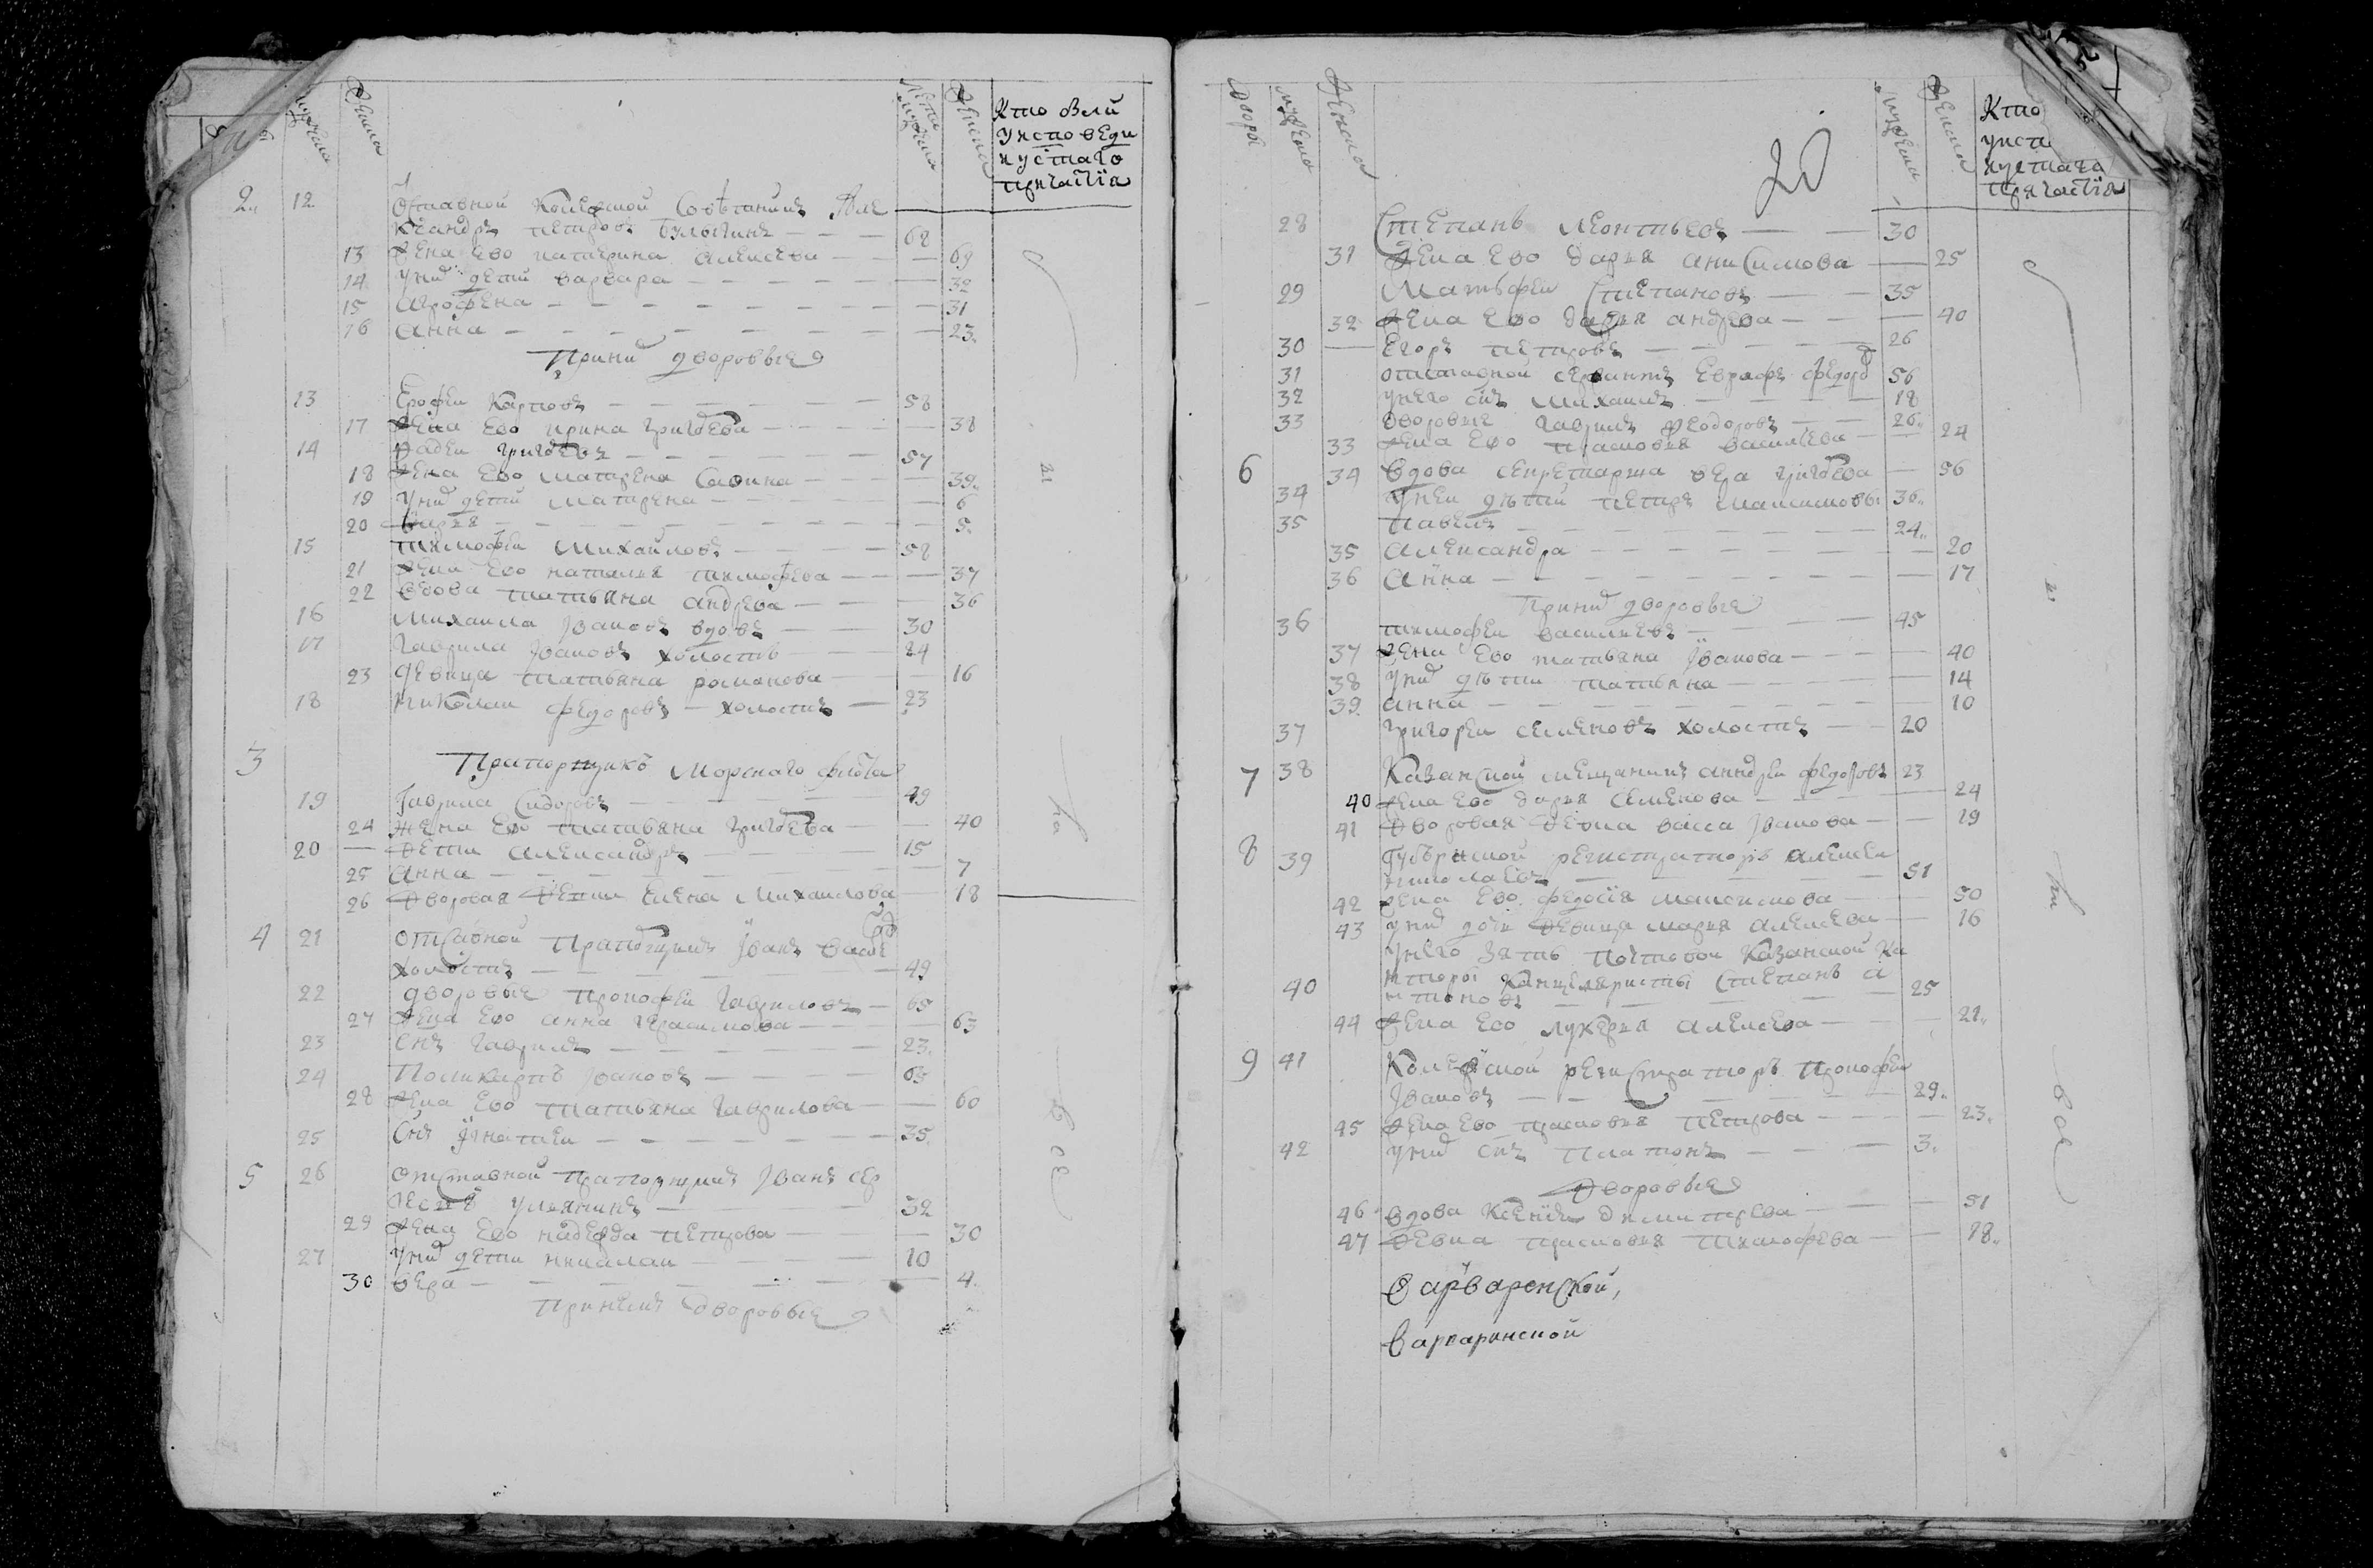 мужска
Женска
Лета мужска
Женска
Кто были
у исповеди
и у святаго
причастїя
2 12 Отставной Колежской Советникъ Але
ксандръ Петровъ 68
13 Жена ево катерина алексеева 69
14 У них дети варвара 32
15 агрофена 31
16 анна 23
При них дворовыя
13 Ерофеи Карповъ 58
17 Жена ево ирина григорева 38
14 Фадеи григоревъ 57
18 Жена ево матрена Савина 39
19 У них дети матрена 6
20 5
15 тимофеи михаиловъ 58
21 Жена ево наталья тимофева 37
22 Вдова татьяна андрева 36
16 михаила Ивановъ вдовъ 30
17 гаврила Ивановъ холостъ 24
23 девица татьяна романова 16
18 николаи федоровъ холостъ 23
3 Прапорщикъ морскаго флота
19 гаврила Сидоровъ 49
24 жена ево татьяна григорева 40
20 дети александръ 15
25 анна 7
26 дворовая девка елена михаилова 18
4 21 отставной Прапорщикъ Иванъ
холостъ 49
22 дворовые прокофеи гавриловъ 65
27 Жена ево анна герасимова 63
23 Снъ гаврилъ 23
24 Поликарпъ Ивановъ 65
28 Жена ево татьяна гаврилова 60
25 Снъ Игнатеи 35
5 26 отставной Прапорщикъ Иванъ сер
32
29 Жена ево надежда петрова 30
27 У них дети николаи 10
30 вера 4
При немъ дворовыя
Дворы
мужска
Женска
мужска
Женска
Кто
у исп
и у святаго
причастїя
20
28 Степанъ леонтьевъ 30
31 Жена ево дарья анисимова 25
29 Матьфеи Степановъ 35
32 Жена ево дарья андрева 40
30 Егоръ петровъ 26
31 отставной сержантъ Евграфъ федоров 56
32 у него снъ михаилъ 18
33 дворовые гаврилъ феодоровъ 26
33 Жена ево прасковья васильева 24
6 34 вдова секретарша вера григорева 56
34 У неи дѣти петръ 36
35 павелъ 24
35 александра 20
36 анна 17
При них дворовые
36 тимофеи васильевъ 45
37 Жена ево татьяна Иванова 40
38 У них дѣти татьяна 14
39 анна 10
37 григореи семеновъ холостъ 20
7 38 Казанской мещанинъ андреи федоровъ 23
40 Жена ево дарья семенова 24
41 дворовая девка васса Иванова 19
8 39 Губернской регистраторъ алексеи
николаевъ 51
42 жена ево федосїя максимова 50
43 у них дочь девица марья алексева 16
У него зять почтовои Казанской Ко
40 нторы Канцеляристъ Степанъ а
нтоновъ 25
44 Жена ево лукерья алексева 21
9 41 Колежской регистраторъ прокофеи
Ивановъ 29
45 Жена ево прасковья петрова 23
42 у них снъ платонъ 3
дворовыя
46 вдова Ксенїя димитрева 51
47 девка прасковья тимофева 18
варваренской,
варваринской